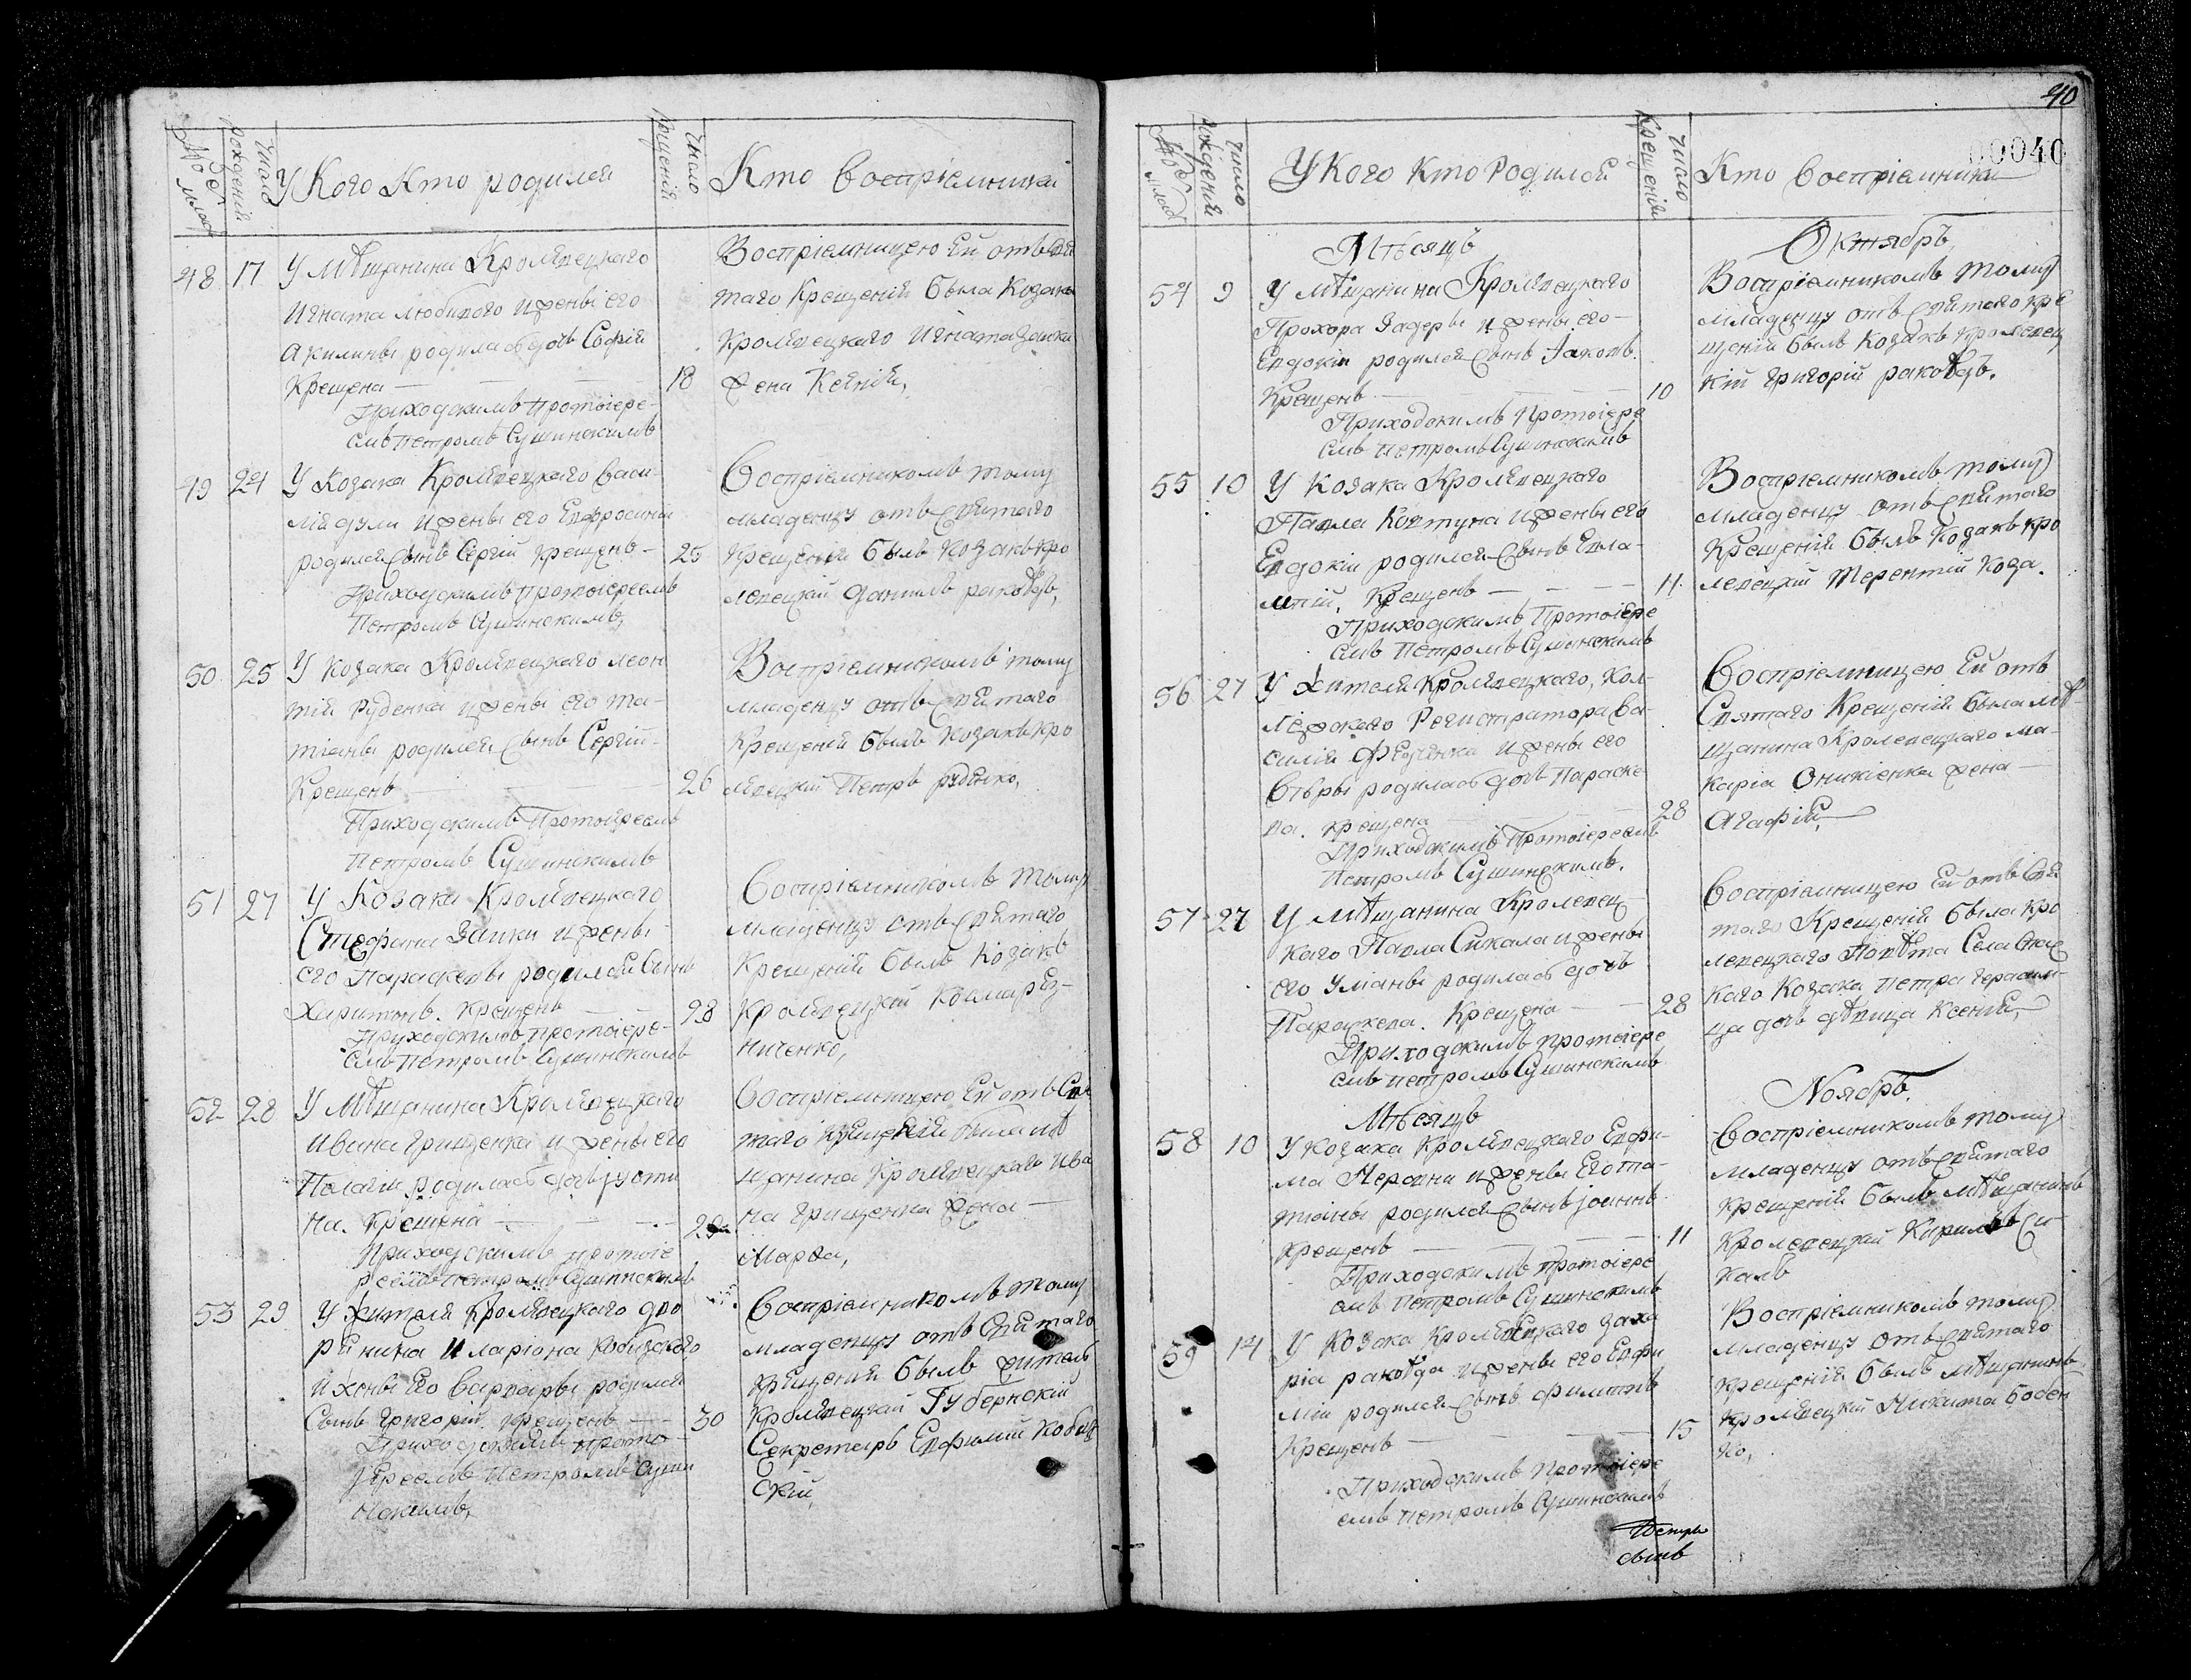 № у кого млад.
число рожденія
У Кого Кто родился
число крещенія
Кто Воспріемники
48 17 У Мѣщанина Кролѣвецкаго
Игната любивого и жены его
Акилины родилась дочь Софія
Крещена 18
Приходскимъ Протоіере-
емъ Петромъ Сушинскимъ
Воспріемницею Ей отъ Свя
таго Крещенія была Козака
Кролѣвецкого Игната Заики
жена Ксенія,
49 24 У Козака Кролѣвецкаго Васи-
лія дули и жены его Евфросиніи
родился Сынъ Сергій Крещенъ - 25
Приходскимъ Протоіереемъ
Петромъ Сушинскимъ,
Воспріемникомъ тому
младенцу отъ Святаго
Крещенія былъ Козакъ Кро
левецкій Данилъ раковѣдъ,
50 25 У Козака Кролѣвецкаго Леон
тія Руденка и жены его Та-
тіаны родился Сынъ Сергій-
Крещенъ 26
Приходскимъ Протоіереемъ
Петромъ Сушинскимъ
Воспріемникомъ тому
младенцу отъ Святаго
Крещенія былъ Козакъ Кро
лѣвецкій Петръ руденко,
51 27 У Козака Кролѣвецкаго
Стефана Заики и жены
его Параскевы родился Сынъ
Харитонъ. Крещенъ 28
Приходскимъ Протоіере-
емъ Петромъ Сушинскимъ
Воспріемникомъ тому
младенцу отъ Святаго
Крещенія былъ Козакъ
Кролѣвецкій Косма рѣз-
ниченко,
52 28 У Мѣщанина Кролѣвецкаго
Ивана Грищенка и жены его
Пелагіи родилась дочь Іусти
на. Крещена 29
Приходскимъ протоіе
реемъ Петромъ Сушинскимъ
Воспріемницею Ей отъ Свя
таго Крещенія была мѣ
щанина Кролѣвецкаго Ива
на Грищенка жена
Марѳа,
53 29 У жителя Кролѣвецкаго дво
рянина Иларіона Кобизского
и жены Его Варвары родился
Сынъ Григорій. Крещенъ 30
Приходскимъ прото
іереемъ Петромъ Суши
нскимъ,
Воспріемникомъ тому
младенцу отъ Святаго
крещенія былъ житель
Кролѣвецкій Губернскій
Секретарь Евфимій Кобиз
скій,
40
00040
№ у кого млад.
число рожденія
У Кого Кто Родился
число Крещенія
Кто Воспріемники
Мѣсяцъ Октябръ
54 9 У Мѣщанина Кролѣвецкаго
Прохора Задеры и жены его-
Евдокіи родился Сынъ Іаковъ.
Крещенъ 10
Приходскимъ Протоіере
емъ Петромъ Сушинскимъ
Воспріемникомъ тому
младенцу отъ Святаго кре
щенія былъ Козакъ Кролевец
кій Григорій раковѣдъ.
55 10 У Козака Кролѣвецкаго
Павла Ковтуна и жены его
Евдокіи родился Сынъ Евла-
мпій. Крещенъ 11.
Приходскимъ Протоіере
емъ Петромъ Сушинскимъ
Воспріемникомъ тому
младенцу отъ Святаго
Крещенія былъ Козакъ Кро
левецкій Терентій Коза.
56 27 У Жителя Кролѣвецкаго, Кол-
лежскаго Регистратора Ва-
силія Федченка и жены его
Вѣры родилась дочь Параске
ва. крещена 28
Приходскимъ Протоіереемъ
Петромъ Сушинскимъ.
Воспріемницею Ей отъ
Святаго Крещенія была мѣ-
щанина Кролевецкаго Ма-
каріа Оникіенка жена
Агафія,
57 27 У Мѣщанина Кролевец
каго Павла Сикала и жены
его Уліаны родилась дочъ
Параскева. Крещена 28
Приходскимъ протоіере
емъ Петромъ Сушинскимъ
Воспріемницею Ей отъ Свя
таго Крещенія была Кро
левецкаго Повѣта Села Спас
каго Козака Петра Герасим-
ца дочь дѣвица Ксенія,
Мѣсяцъ Ноябръ.
58 10 У Козака Кролѣвецкаго Евфи-
ма и жены Его Та-
тіаны родился Сынъ Іоаннъ
крещенъ 11
Приходскимъ протоіере
емъ Петромъ Сушинскимъ
Воспріемникомъ тому
младенцу отъ Святаго
крещенія былъ мѣщанинъ
Кролевецкій Кирилъ Си
калъ
59 14 У Козака Кролѣвецкаго Заха
ріа раковѣда и жены его Евфи
міи родился Сынъ Филиппъ
Крещенъ 15
Приходскимъ Протоіере
емъ Петромъ Сушинскимъ
Воспріемникомъ тому
младенцу отъ Святаго
крещенія былъ мѣщанинъ
Кролѣвецкій Никита бобен
ко,